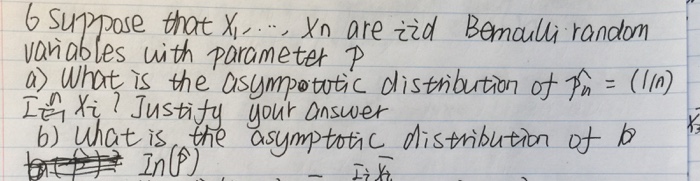 6 Suppose that X1,..., Xn are iid Bernoulli random
variables with parameter P
a) What is the asympototic distribution of p̂n = (1/n)
Σⁿi=1 Xi ? Justify your answer
b) What is the asymptotic distribution of b
In(p̂)